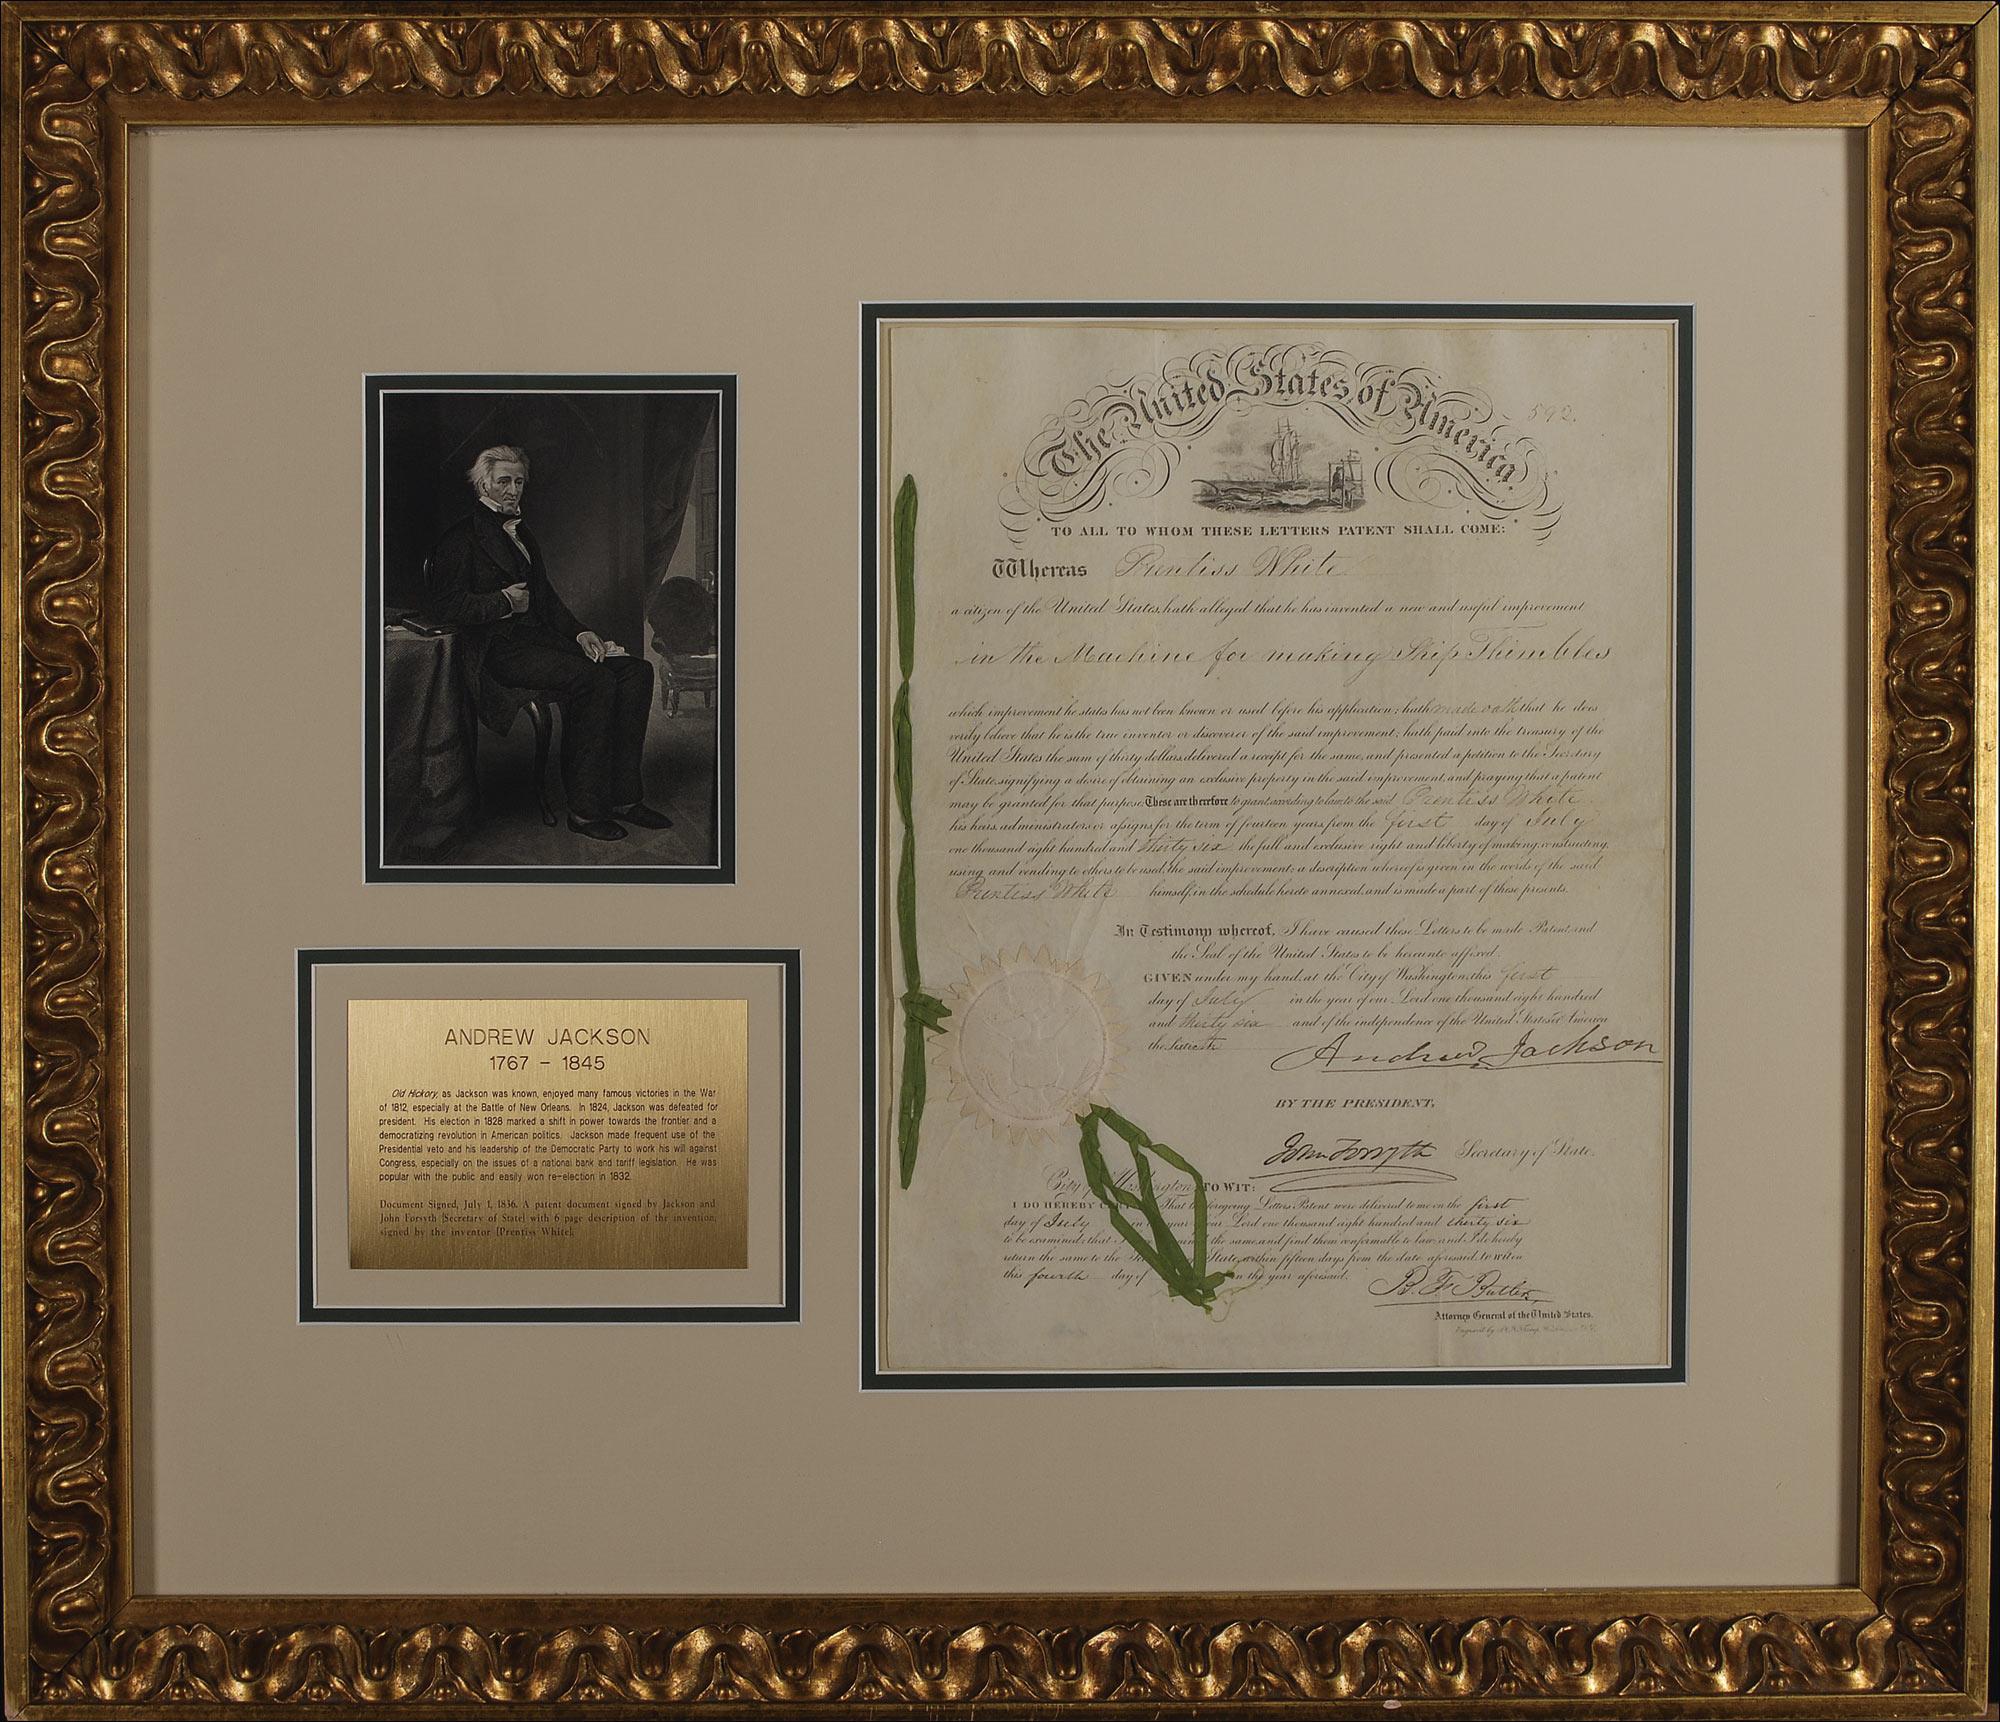 ANDREW JACKSON
1767 - 1845
Old Hickory, as Jackson was known, enjoyed many famous victories in the War
of 1812, especially at the Battle of New Orleans. In 1824, Jackson was defeated for
president. His election in 1828 marked a shift in power towards the frontier and a
democratizing revolution in American politics. Jackson made frequent use of the
Presidential veto and his leadership of the Democratic Party to work his will against
Congress, especially on the issues of a national bank and tariff legislation. He was
popular with the public and easily won re-election in 1832.
Document Signed, July 1, 1836. A patent document signed by Jackson and
John Forsyth [Secretary of State] with 6 page description of the invention,
signed by the inventor [Prentiss White].
The United States of America
592.
TO ALL TO WHOM THESE LETTERS PATENT SHALL COME:
Whereas Prentiss White
a citizen of the United States, hath alleged that he has invented a new and useful improvement
in the Machine for making Ship Thimbles
which improvement he states has not been known or used before his application; hath made oath that he does
verily believe that he is the true inventor or discoverer of the said improvement; hath paid into the treasury of the
United States the sum of thirty dollars, delivered a receipt for the same, and presented a petition to the Secretary
of State, signifying a desire of obtaining an exclusive property in the said improvement, and praying that a patent
may be granted for that purpose: These are therefore to grant, according to law, to the said Prentiss White
his heirs, administrators or assigns, for the term of fourteen years, from the first day of July
one thousand eight hundred and thirty six the full and exclusive right and liberty of making, constructing,
using, and vending to others to be used, the said improvement; a description whereof is given in the words of the said
Prentiss White himself, in the schedule hereto annexed, and is made a part of these presents.
In Testimony whereof, I have caused these Letters to be made Patent, and
the Seal of the United States to be hereunto affixed.
GIVEN under my hand, at the City of Washington, this first
day of July in the year of our Lord one thousand eight hundred
and thirty six and of the independence of the United States of America
the Sixtieth
Andrew Jackson
BY THE PRESIDENT,
John Forsyth Secretary of State.
City of Washington, TO WIT:
I DO HEREBY CERTIFY, That the foregoing Letters Patent were delivered to me on the first
day of July in the year of our Lord one thousand eight hundred and thirty six
to be examined; that I have examined the same, and find them conformable to law; and I do hereby
return the same to the Secretary of State, within fifteen days from the date aforesaid, to wit on
this fourth day of in the year aforesaid.
B. F. Butler,
Attorney General of the United States.
Engraved by